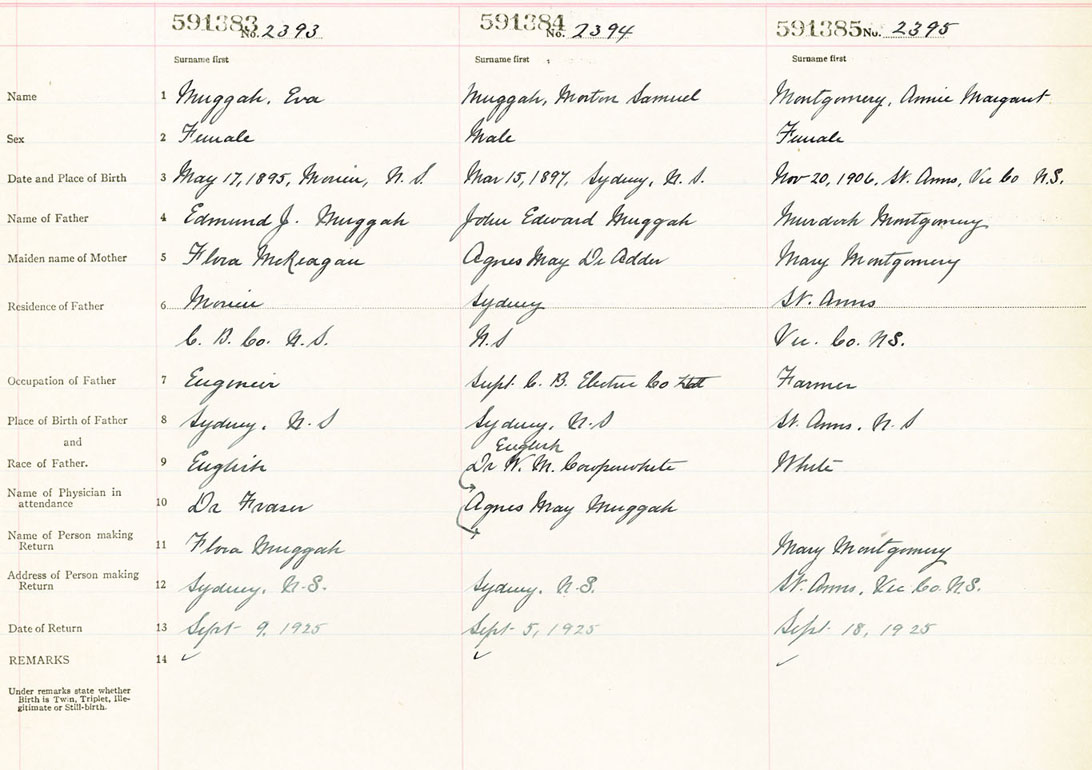 591383 No. 2393 591384 No. 2394 591385 No. 2395
Surname first Surname first Surname first
Name 1 Muggah, Eva Muggah, Morton Samuel Montgomery, Annie Margaret
Sex 2 Female Male Female
Date and Place of Birth 3 May 17, 1895, Morien, N.S. Mar 15, 1897, Sydney, N.S. Nov 20, 1906, St. Anns, Vic Co N.S.
Name of Father 4 Edmund J. Muggah John Edward Muggah Murdoch Montgomery
Maiden name of Mother 5 Flora McKeagan Agnes May De Adder Mary Montgomery
Residence of Father 6 Morien Sydney St. Anns
C. B. Co. N.S. N.S Vic. Co. N.S.
Occupation of Father 7 Engineer Supt. C. B. Electric Co Farmer
Place of Birth of Father 8 Sydney, N.S Sydney, N.S St. Anns, N.S
and English
Race of Father. 9 English Dr W. M. Cowperwhite White
Name of Physician in
attendance 10 Dr Fraser Agnes May Muggah
Name of Person making
Return 11 Flora Muggah Mary Montgomery
Address of Person making
Return 12 Sydney, N.S. Sydney, N.S. St. Anns, Vic Co. N.S.
Date of Return 13 Sept 9, 1925 Sept 5, 1925 Sept. 18, 1925
REMARKS 14
Under remarks state whether
Birth is Twin, Triplet, Ille-
gitimate or Still-birth.